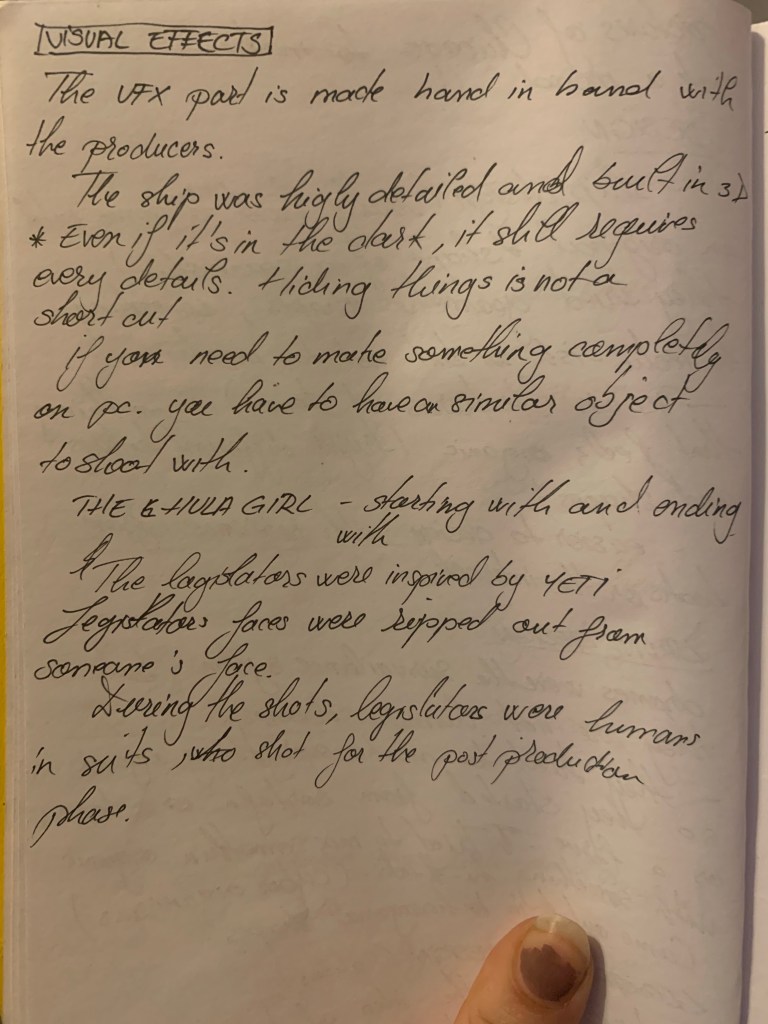 VISUAL EFFECTS
The VFX part is made hand in hand with
the producers.
The ship was higly detailed and built in 3D
* Even if it's in the dark, it still requires
every details. Hiding things is not a
short cut
if you need to make something completely
on pc. you have to have a similar object
to shoot with.
THE HULA GIRL - starting with and ending
with
The legislators were inspired by YETI
Legislators faces were ripped out from
someone's face.
During the shots, legislators were humans
in suits, who shot for the post production
phase.